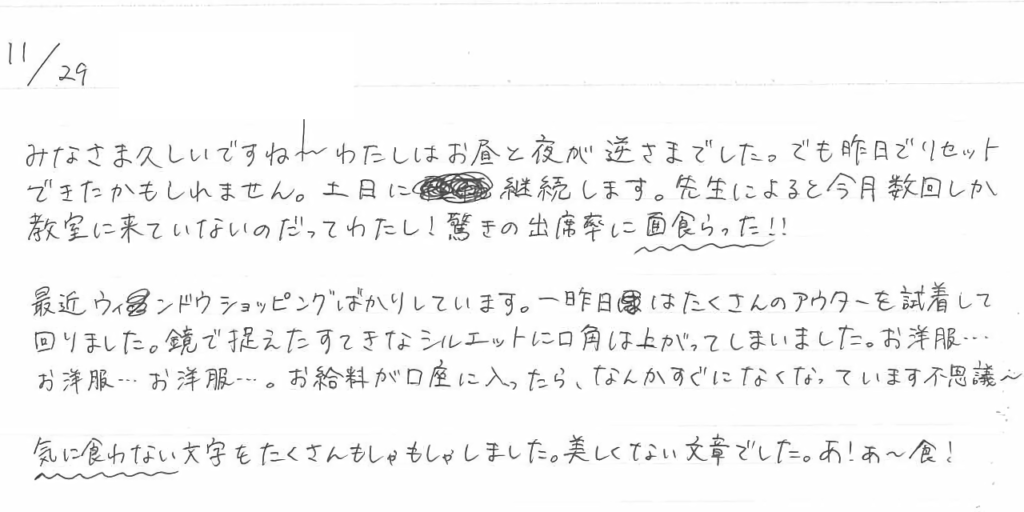 11/29
みなさま久しいですね〜わたしはお昼と夜が逆さまでした。でも昨日でリセット
できたかもしれません。土日に継続します。先生によると今月数回しか
教室に来ていないのだってわたし!驚きの出席率に面食らった!!
最近ウィンドウショッピングばかりしています。一昨日はたくさんのアウターを試着して
回りました。鏡で捉えたすてきなシルエットに口角は上がってしまいました。お洋服…
お洋服…お洋服…。お給料が口座に入ったら、なんかすぐになくなっています不思議〜
気に食わない文字をたくさんもしゃもしゃしました。美しくない文章でした。あ!ぁ〜食!